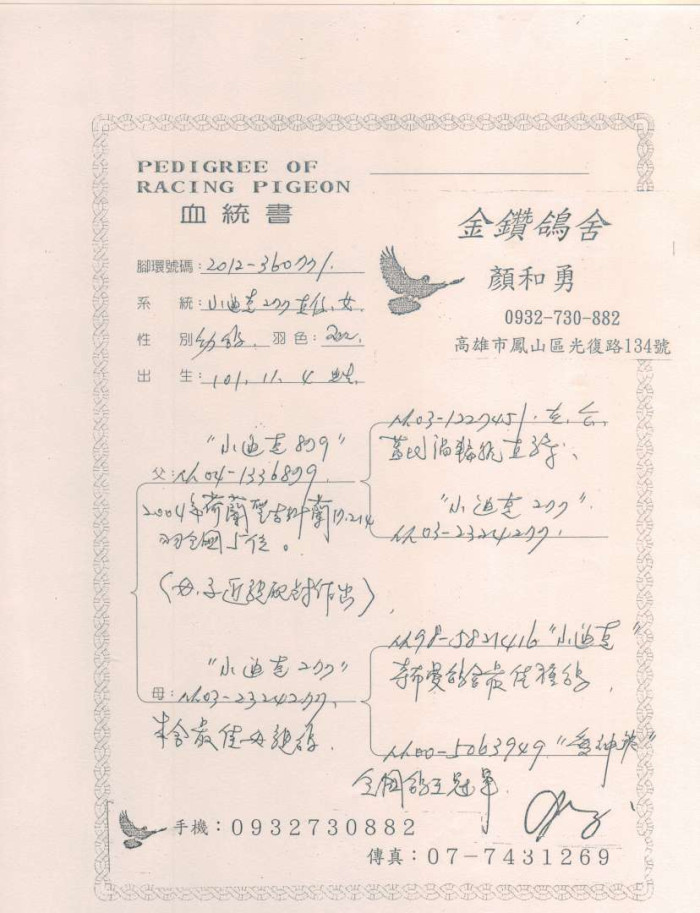 PEDIGREE OF
RACING PIGEON
血統書
金鑽鴿舍
顏和勇
0932-730-882
高雄市鳳山區光復路134號
腳環號碼：2012-360771.
系 統：小迪克277直仔.女.
性 別 幼鴿. 羽色：
出 生：101.11.4
"小迪克879"
父：NL04-1336879
2004年荷蘭聖吉斯蘭17.214
羽全國5位。
(母.子近親配對作出)
NL03-1227451.
直孫、
"小迪克277".
NL03-2324277.
"小迪克277"
母：NL03-2324277.
本舍最佳母親鴿.
NL98-5821416"小迪克"
鴿舍最佳種鴿.
NL00-5063949"愛神號"
全國鴿王冠軍.
手機：0932730882
傳真：07-7431269